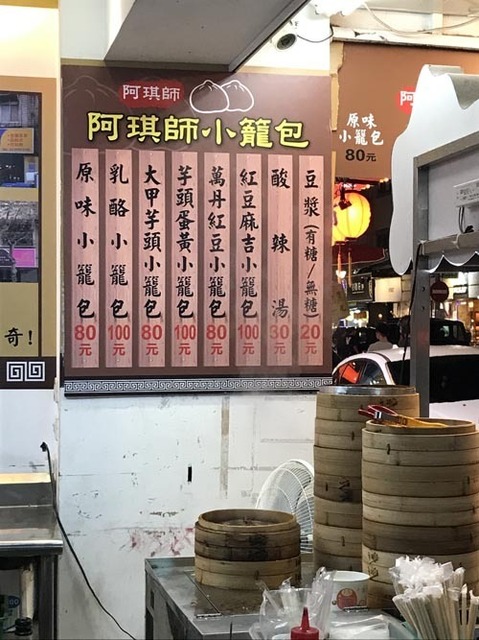 阿琪師
阿琪師小籠包
原味小籠包 80元
乳酪小籠包 100元
大甲芋頭小籠包 80元
芋頭蛋黃小籠包 100元
萬丹紅豆小籠包 80元
紅豆麻吉小籠包 100元
酸辣湯 30元
豆漿(有糖/無糖) 20元
原味
小籠包
80元
奇!